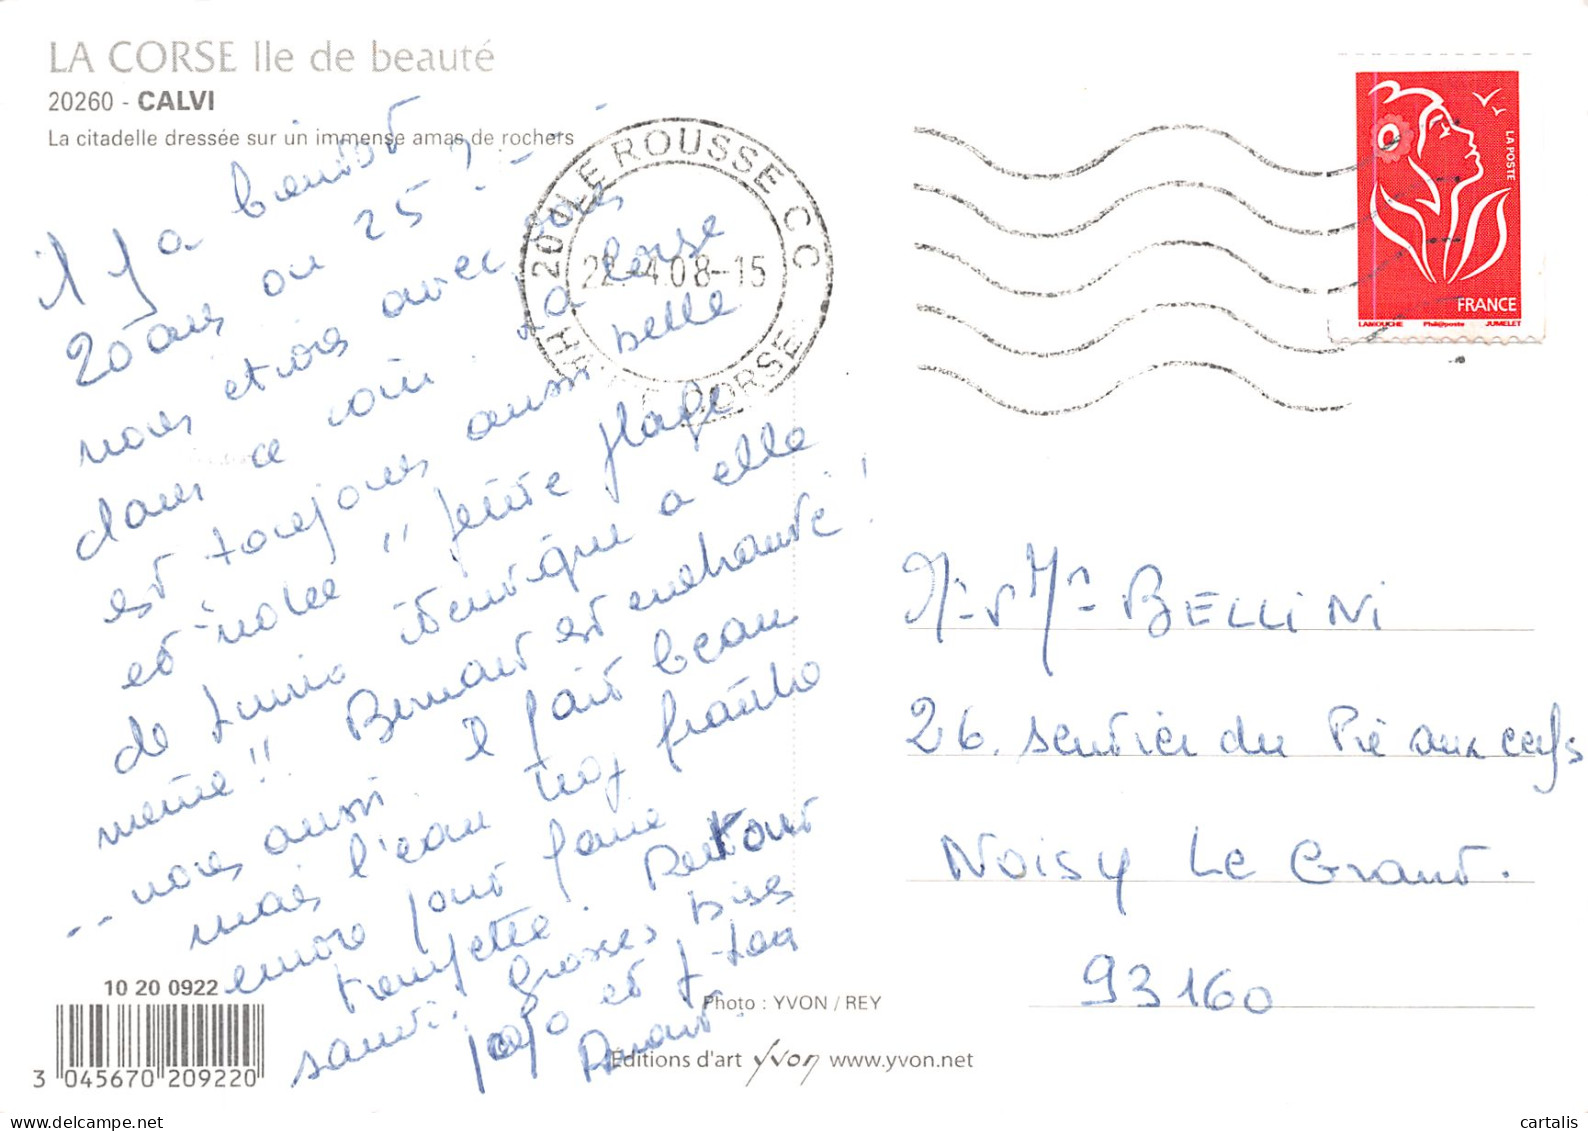 LA CORSE Ile de beauté
20260 - CALVI
La citadelle dressée sur un immense amas de rochers
il y a bientôt
20 ans ou 25 ? -
nous étions avec vous
dans ce coin, la Corse
est toujours aussi belle
et "notre" petite plage
de identique a elle
même !! Bernard est enchanté !
-- nous aussi. Il fait beau
mais l'eau trop fraîche
encore pour faire
trempette. Surtout
santé. grosses bises
papo et J-Lou
20 ILE ROUSSE CC
22-4.08-15
HTE CORSE
LA POSTE
FRANCE
LAMOUCHE Phil@poste JUMELET
Mr et Mme BELLINI
26. sentier du Pré aux cerfs
Noisy Le Grand.
93160
10 20 0922
3 045670 209220
Photo : YVON / REY
Éditions d'art yvon www.yvon.net
cartalis